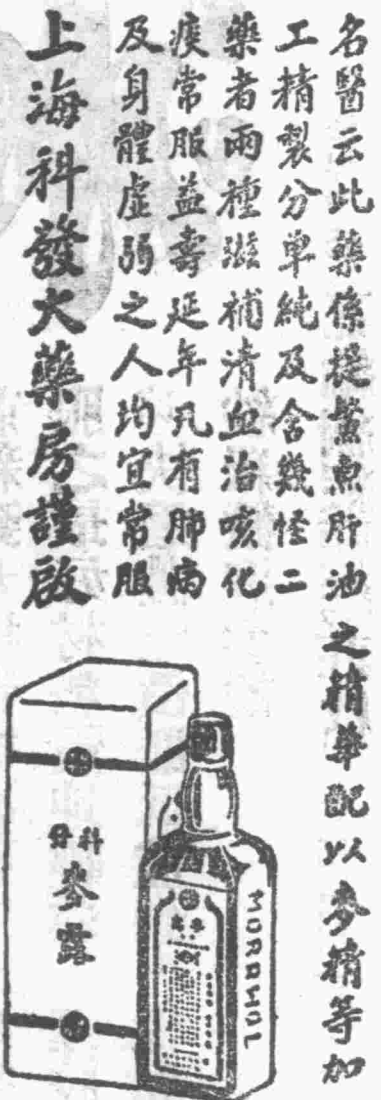 名醫云此藥係提鱉魚肝油之精華配以麥精等加
工精製分單純及含幾怪二
藥者兩種滋補清血治咳化
痰常服益壽延年凡有肺病
及身體虛弱之人均宜常服
上海科發大藥房謹啟
科發
麥露
MORRWOL